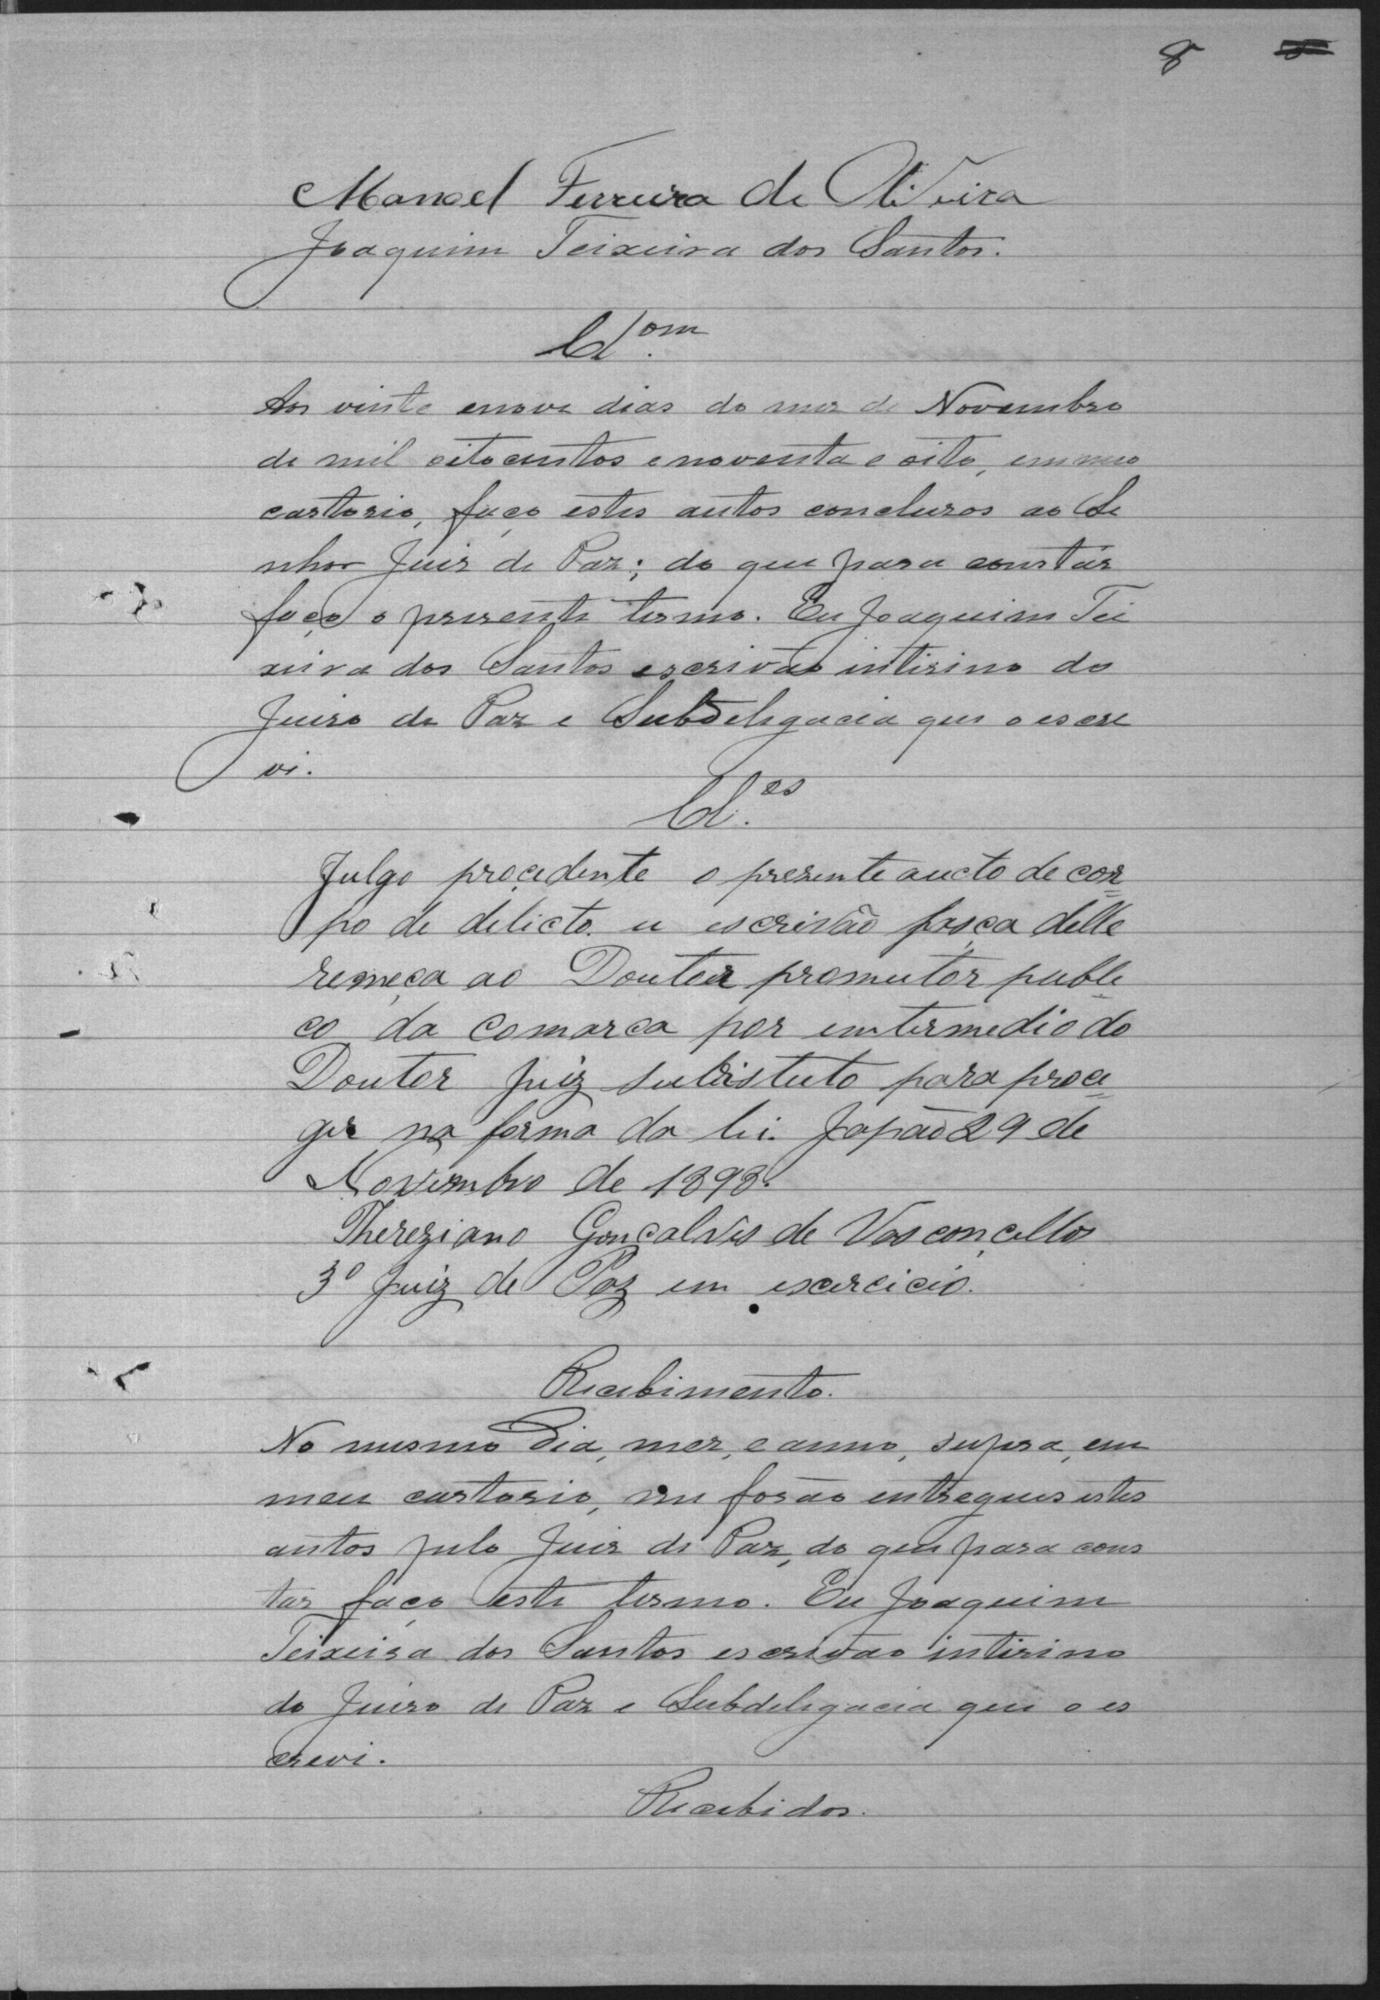 8
Manoel Ferreira de Oliveira
Joaquim Teixeira dos Santos.
Cl.om
Aos vinte enove dias do mez de Novembro
de mil oitocentos enoventa e oito, em meo
cartorio, faço estes autos concluzos ao Se
nhor Juiz de Paz; do que para constár
faço o prezente termo. Eu Joaquim Tei
xeira dos Santos escrivão intirino do
Juizo de Paz e Subdelegacia que o escre
vi.
Cl.es
Julgo procedente o prezente aucto de cor
po de delicto. u escrivão fasça delle
remeça ao Douter promutor puble
co da comarca por emtermedio do
Douter Juiz subistuto para proce
ger na forma da lei. Japão 29 de
Novembro de 1898.
Thereziano Gonçalves de Vasconcellos
3º Juiz de Paz em escercicio.
Recebimento.
No mesmo dia, mez, e anno, supra, em
meu cartorio, me forão entregues estes
autos pelo Juiz de Paz, do que para cons
tar faço este termo. Eu Joaquim
Teixeira dos Santos escrivão intirino
do Juizo de Paz e Subdelegacia que o es
crevi.
Recebidos.